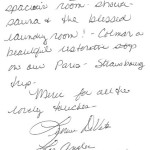 spacious room shower
sauna & the blessed
laundry room! - Colmar a
beautiful restorative stop
on our Paris - Strasbourg
trip.
Merci for all the
lovely touches.